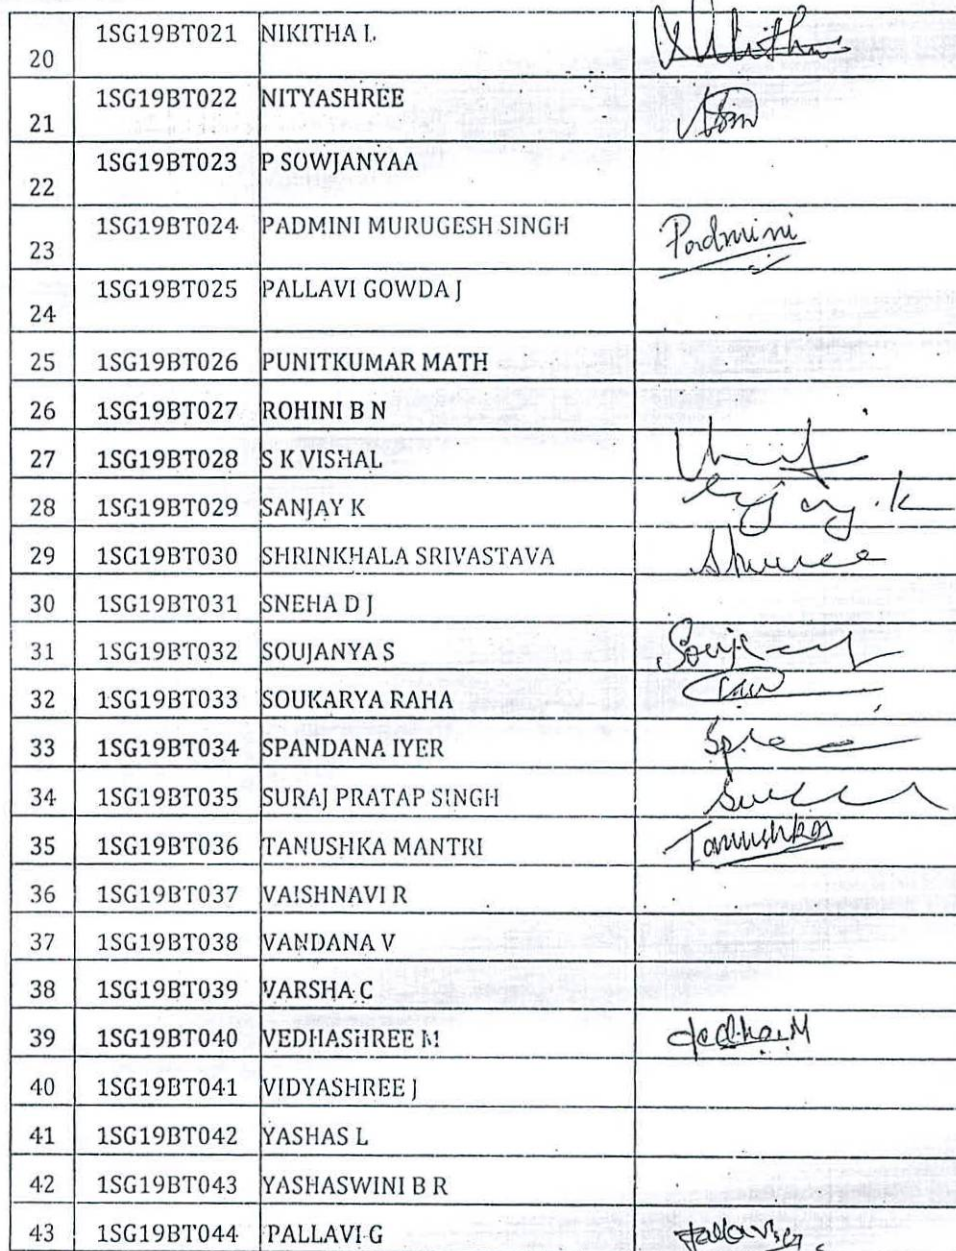 20 1SG19BT021 NIKITHA L
21 1SG19BT022 NITYASHREE
22 1SG19BT023 P SOWJANYAA
23 1SG19BT024 PADMINI MURUGESH SINGH Padmini
24 1SG19BT025 PALLAVI GOWDA J
25 1SG19BT026 PUNITKUMAR MATH
26 1SG19BT027 ROHINI B N
27 1SG19BT028 S K VISHAL
28 1SG19BT029 SANJAY K
29 1SG19BT030 SHRINKHALA SRIVASTAVA
30 1SG19BT031 SNEHA D J
31 1SG19BT032 SOUJANYA S
32 1SG19BT033 SOUKARYA RAHA
33 1SG19BT034 SPANDANA IYER
34 1SG19BT035 SURAJ PRATAP SINGH
35 1SG19BT036 TANUSHKA MANTRI
36 1SG19BT037 VAISHNAVI R
37 1SG19BT038 VANDANA V
38 1SG19BT039 VARSHA C
39 1SG19BT040 VEDHASHREE M
40 1SG19BT041 VIDYASHREE J
41 1SG19BT042 YASHAS L
42 1SG19BT043 YASHASWINI B R
43 1SG19BT044 PALLAVI G